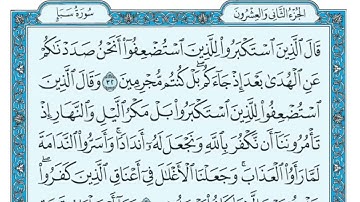 الجزء الثاني والعشرون سورة سبإ
قَالَ الَّذِينَ اسْتَكْبَرُوا لِلَّذِينَ اسْتُضْعِفُوا أَنَحْنُ صَدَدْنَاكُمْ
عَنِ الْهُدَىٰ بَعْدَ إِذْ جَاءَكُم بَلْ كُنتُم مُّجْرِمِينَ ٣٢ وَقَالَ الَّذِينَ
اسْتُضْعِفُوا لِلَّذِينَ اسْتَكْبَرُوا بَلْ مَكْرُ اللَّيْلِ وَالنَّهَارِ إِذْ
تَأْمُرُونَنَا أَن نَّكْفُرَ بِاللَّهِ وَنَجْعَلَ لَهُ أَندَادًا وَأَسَرُّوا النَّدَامَةَ
لَمَّا رَأَوُا الْعَذَابَ وَجَعَلْنَا الْأَغْلَالَ فِي أَعْنَاقِ الَّذِينَ كَفَرُوا